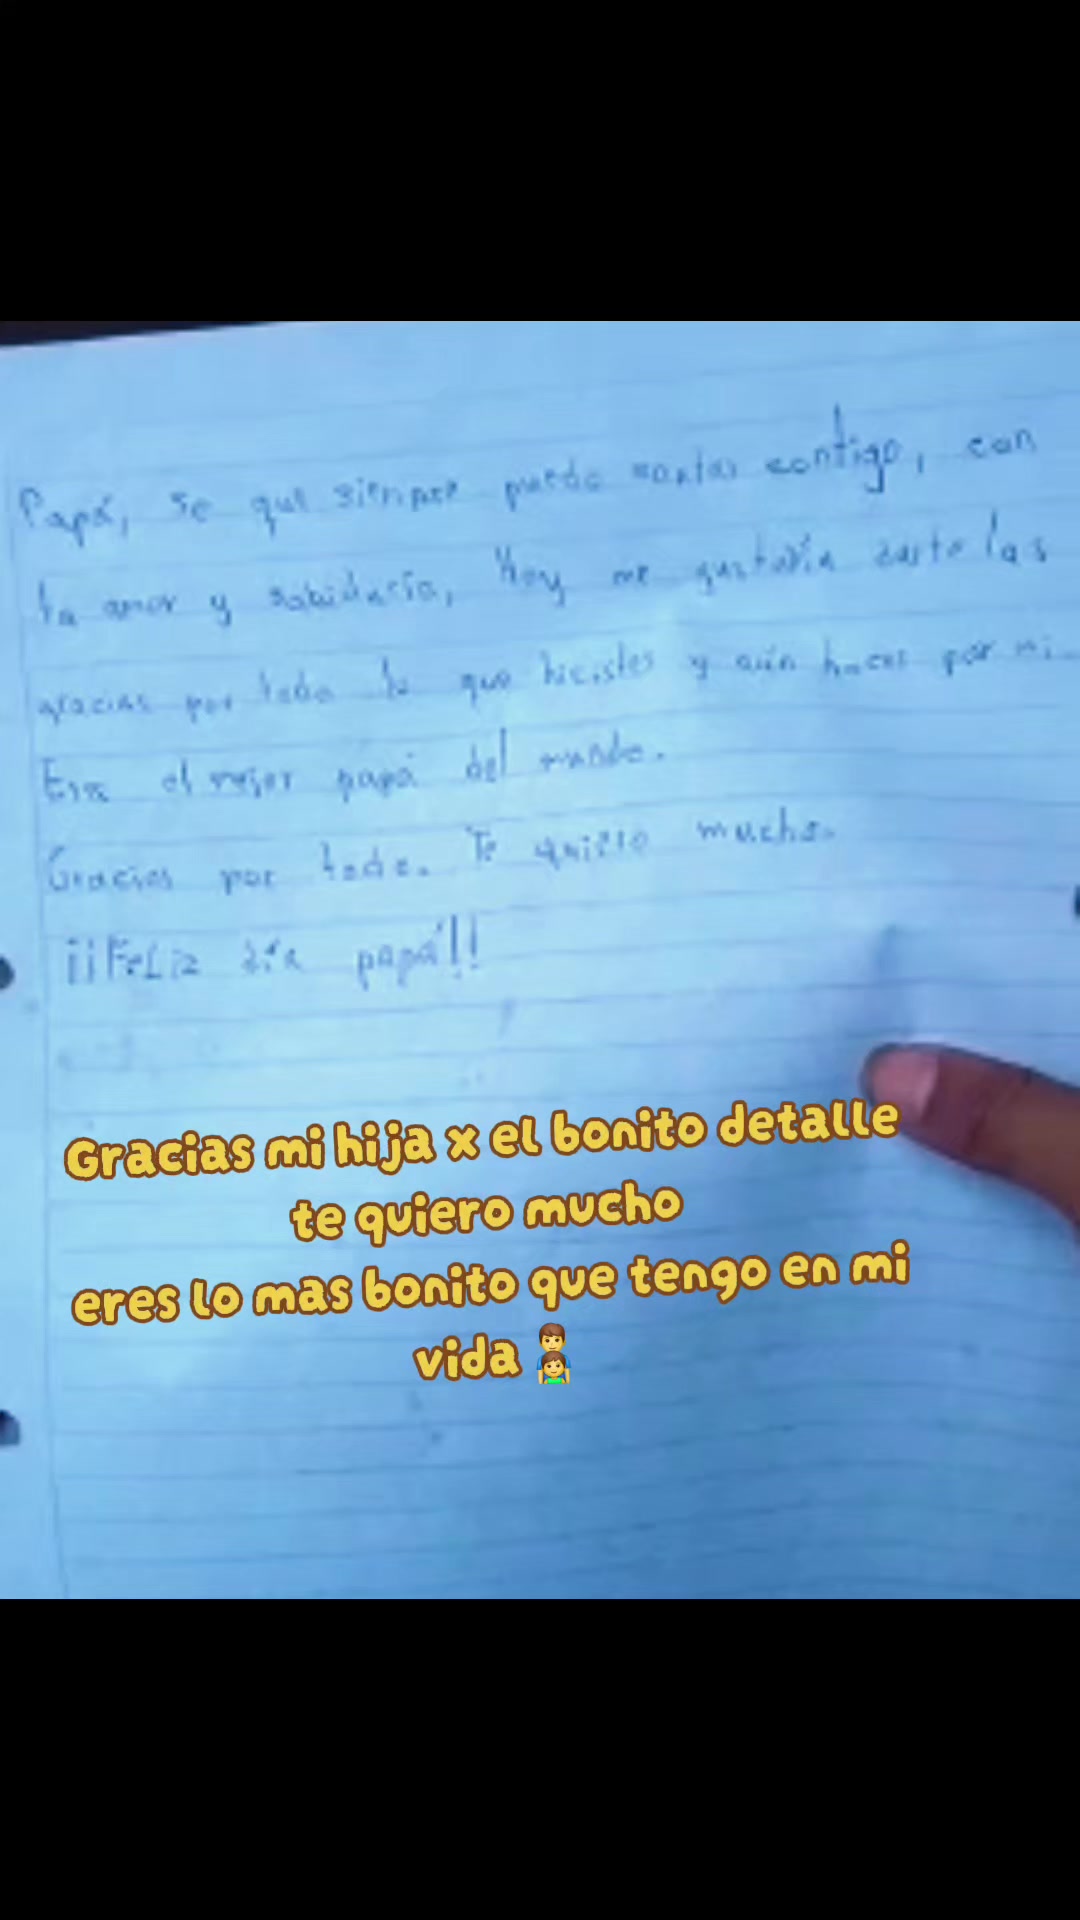 Papá, se que siempre puedo contar contigo, con
tu amor y sabiduría, Hoy me gustaría darte las
gracias por todo lo que hicistes y aún haces por mi.
Eres el mejor papá del mundo.
Gracias por todo. Te quiero mucho.
¡¡Feliz día papá!!
Gracias mi hija x el bonito detalle
te quiero mucho
eres lo mas bonito que tengo en mi
vida 👨‍👦